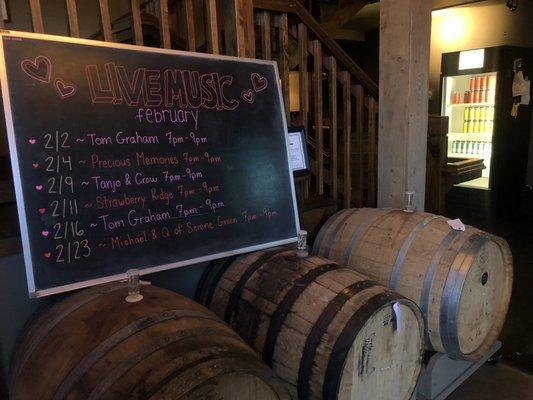 LIVE MUSIC
february
2/2 ~ Tom Graham 7pm-9pm
2/4 ~ Precious Memories 7pm-9pm
2/9 ~ Tanjo & Crow 7pm-9pm
2/11 ~ Strawberry Ridge 7pm-9pm
2/16 ~ Tom Graham 7pm-9pm
2/23 ~ Michael & Q of Serene Green 7pm-9pm